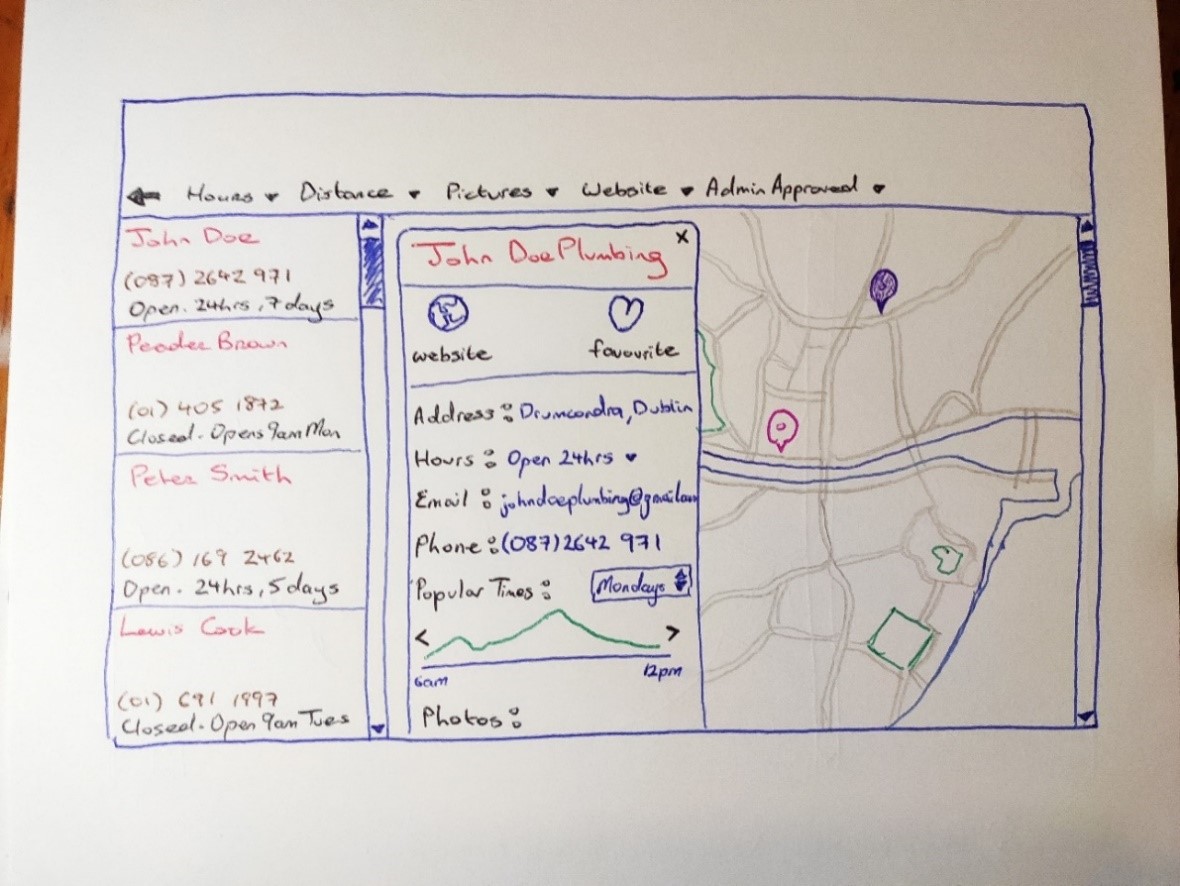 Hours Distance Pictures Website Admin Approved
John Doe
(087) 2642 971
Open. 24hrs, 7 days
Peader Brown
(01) 405 1872
Closed. Opens 9am Mon
Peter Smith
(086) 169 2462
Open. 24hrs, 5 days
Lewis Cook
(01) 691 1997
Closed. Open 9am Tues
John Doe Plumbing x
website favourite
Address: Drumcondra, Dublin
Hours: Open 24hrs
Email: johndoeplumbing@gmail
Phone: (087) 2642 971
Popular Times: Mondays
< >
6am 12pm
Photos: